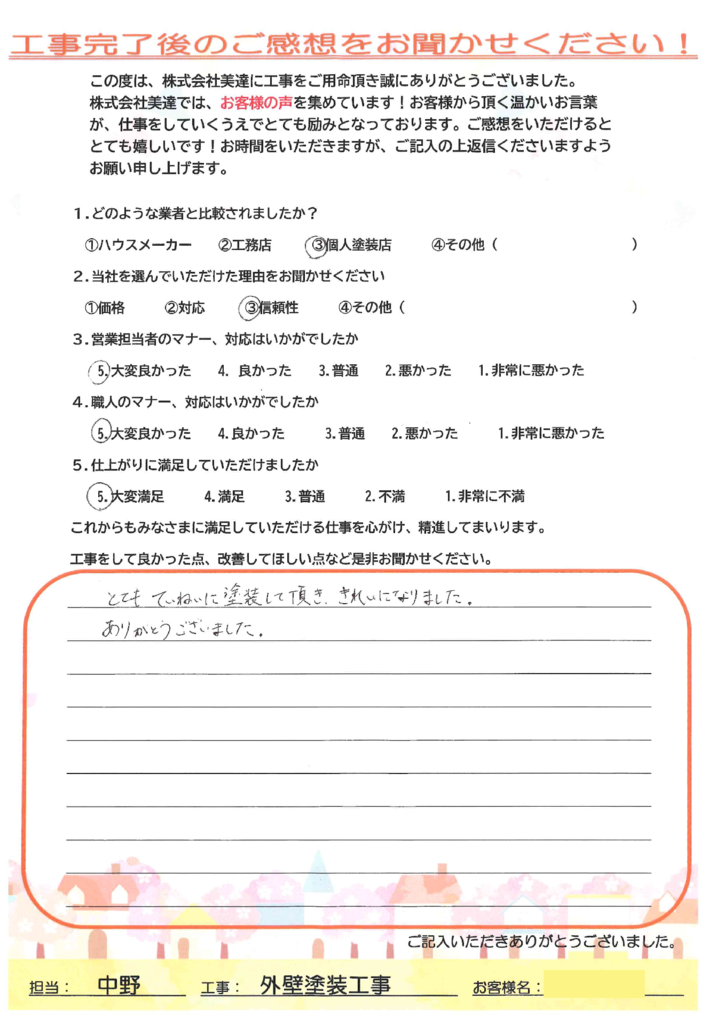 工事完了後のご感想をお聞かせください！
この度は、株式会社美達に工事をご用命頂き誠にありがとうございました。
株式会社美達では、お客様の声を集めています！お客様から頂く温かいお言葉
が、仕事をしていくうえでとても励みとなっております。ご感想をいただけると
とても嬉しいです！お時間をいただきますが、ご記入の上返信くださいますよう
お願い申し上げます。
１.どのような業者と比較されましたか？
①ハウスメーカー ②工務店 ③個人塗装店 ④その他（ ）
２.当社を選んでいただけた理由をお聞かせください
①価格 ②対応 ③信頼性 ④その他（ ）
３.営業担当者のマナー、対応はいかがでしたか
5.大変良かった 4. 良かった 3.普通 2.悪かった 1.非常に悪かった
４.職人のマナー、対応はいかがでしたか
5.大変良かった 4.良かった 3.普通 2.悪かった 1.非常に悪かった
５.仕上がりに満足していただけましたか
5.大変満足 4.満足 3.普通 2.不満 1.非常に不満
これからもみなさまに満足していただける仕事を心がけ、精進してまいります。
工事をして良かった点、改善してほしい点など是非お聞かせください。
とても ていねいに塗装して頂き、きれいになりました。
ありがとうございました。
ご記入いただきありがとうございました。
担当： 中野 工事： 外壁塗装工事 お客様名：